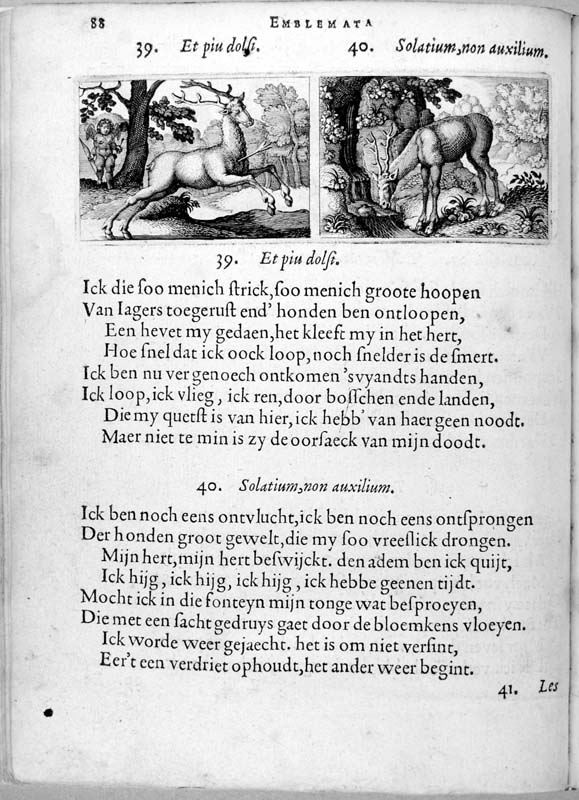 88 EMBLEMATA
39. Et piu dolſi. 40. Solatium, non auxilium.
39. Et piu dolſi.
Ick die ſoo menich ſtrick, ſoo menich groote hoopen
Van Iagers toegeruſt end' honden ben ontloopen,
Een hevet my gedaen, het kleeft my in het hert,
Hoe ſnel dat ick oock loop, noch ſnelder is de ſmert.
Ick ben nu ver genoech ontkomen 'svyandts handen,
Ick loop, ick vlieg, ick ren, door boſſchen ende landen,
Die my quetſt is van hier, ick hebb' van haer geen noodt.
Maer niet te min is zy de oorſaeck van mijn doodt.
40. Solatium, non auxilium.
Ick ben noch eens ontvlucht, ick ben noch eens ontſprongen
Der honden groot gewelt, die my ſoo vreeſlick drongen.
Mijn hert, mijn hert beſwijckt. den adem ben ick quijt,
Ick hijg, ick hijg, ick hijg, ick hebbe geenen tijdt.
Mocht ick in die fonteyn mijn tonge wat beſproeyen,
Die met een ſacht gedruys gaet door de bloemkens vloeyen.
Ick worde weer gejaecht. het is om niet verſint,
Eer't een verdriet ophoudt, het ander weer begint.
41. Les